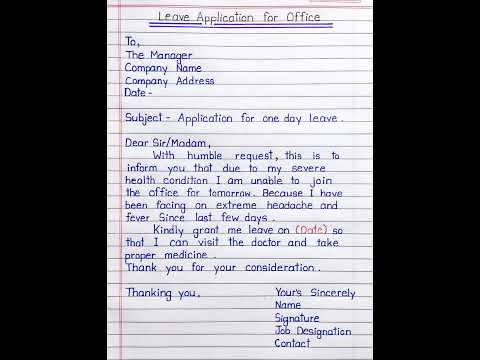 Leave Application for Office
To,
The Manager
Company Name
Company Address
Date -
Subject - Application for one day leave.
Dear Sir/Madam,
With humble request, this is to
inform you that due to my severe
health condition I am unable to join
the office for tomorrow. Because I have
been facing an extreme headache and
fever Since last few days.
Kindly grant me leave on (Date) so
that I can visit the doctor and take
proper medicine.
Thank you for your consideration.
Thanking you,
Your's Sincerely
Name
Signature
Job Designation
Contact